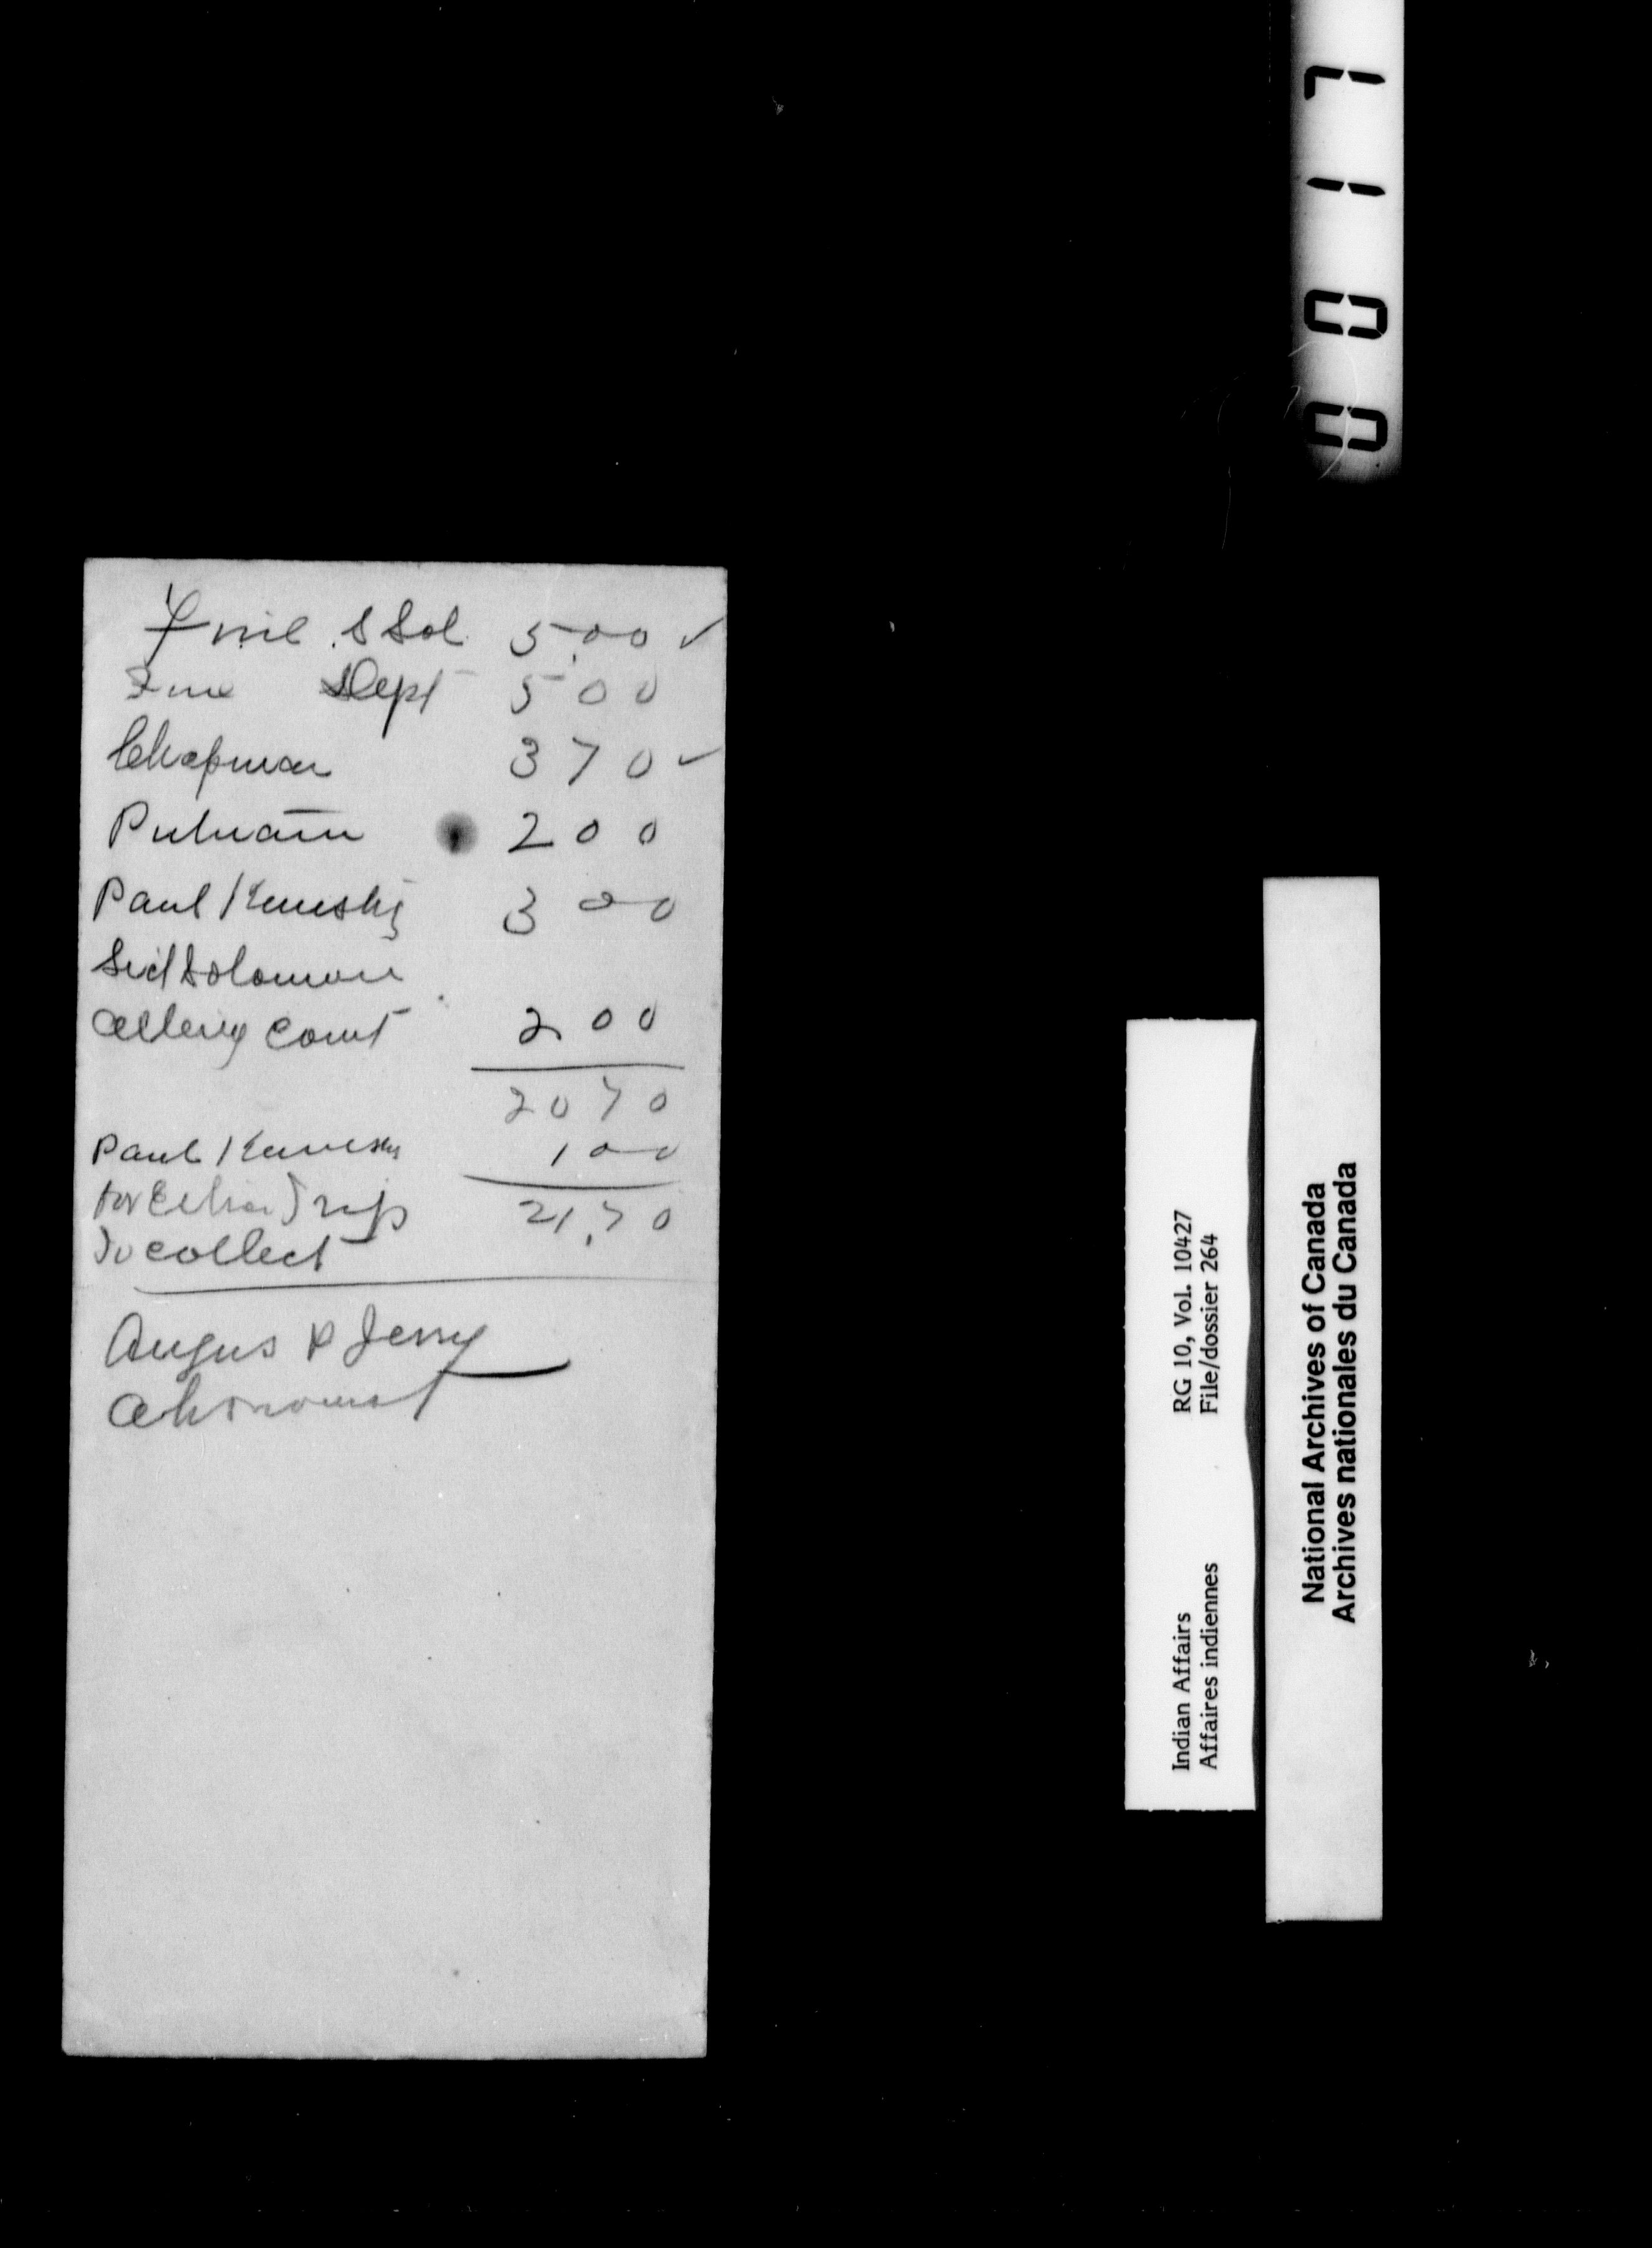 Fine S Sol 5.00 ✓
Fine Dept 5 00
Chapman 3 70 ✓
Putnam 2 00
Paul Keneshi 3 00
Sid Solomon
court 2 00
20 70
Paul 1 00
for Extra Trip 21.70
to collect
Angus P Jerry
0017
Indian Affairs RG 10, Vol. 10427
Affaires indiennes File/dossier 264
National Archives of Canada
Archives nationales du Canada